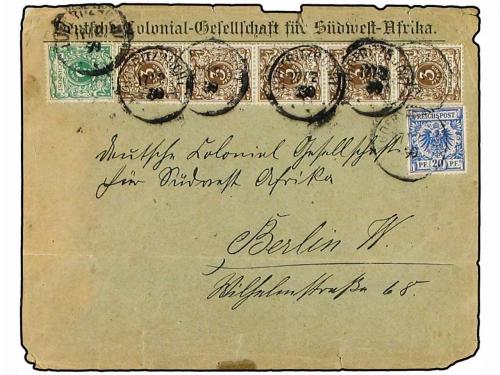 Deutsche Colonial-Gesellschaft für Südwest-Afrika.
5 3 3 3 3 3 3
REICHSPOST
PF. 20 PF.
Deutsche Colonial Gesellschaft
für Südwest Afrika
Berlin W.
Wilhelmstraße 68.